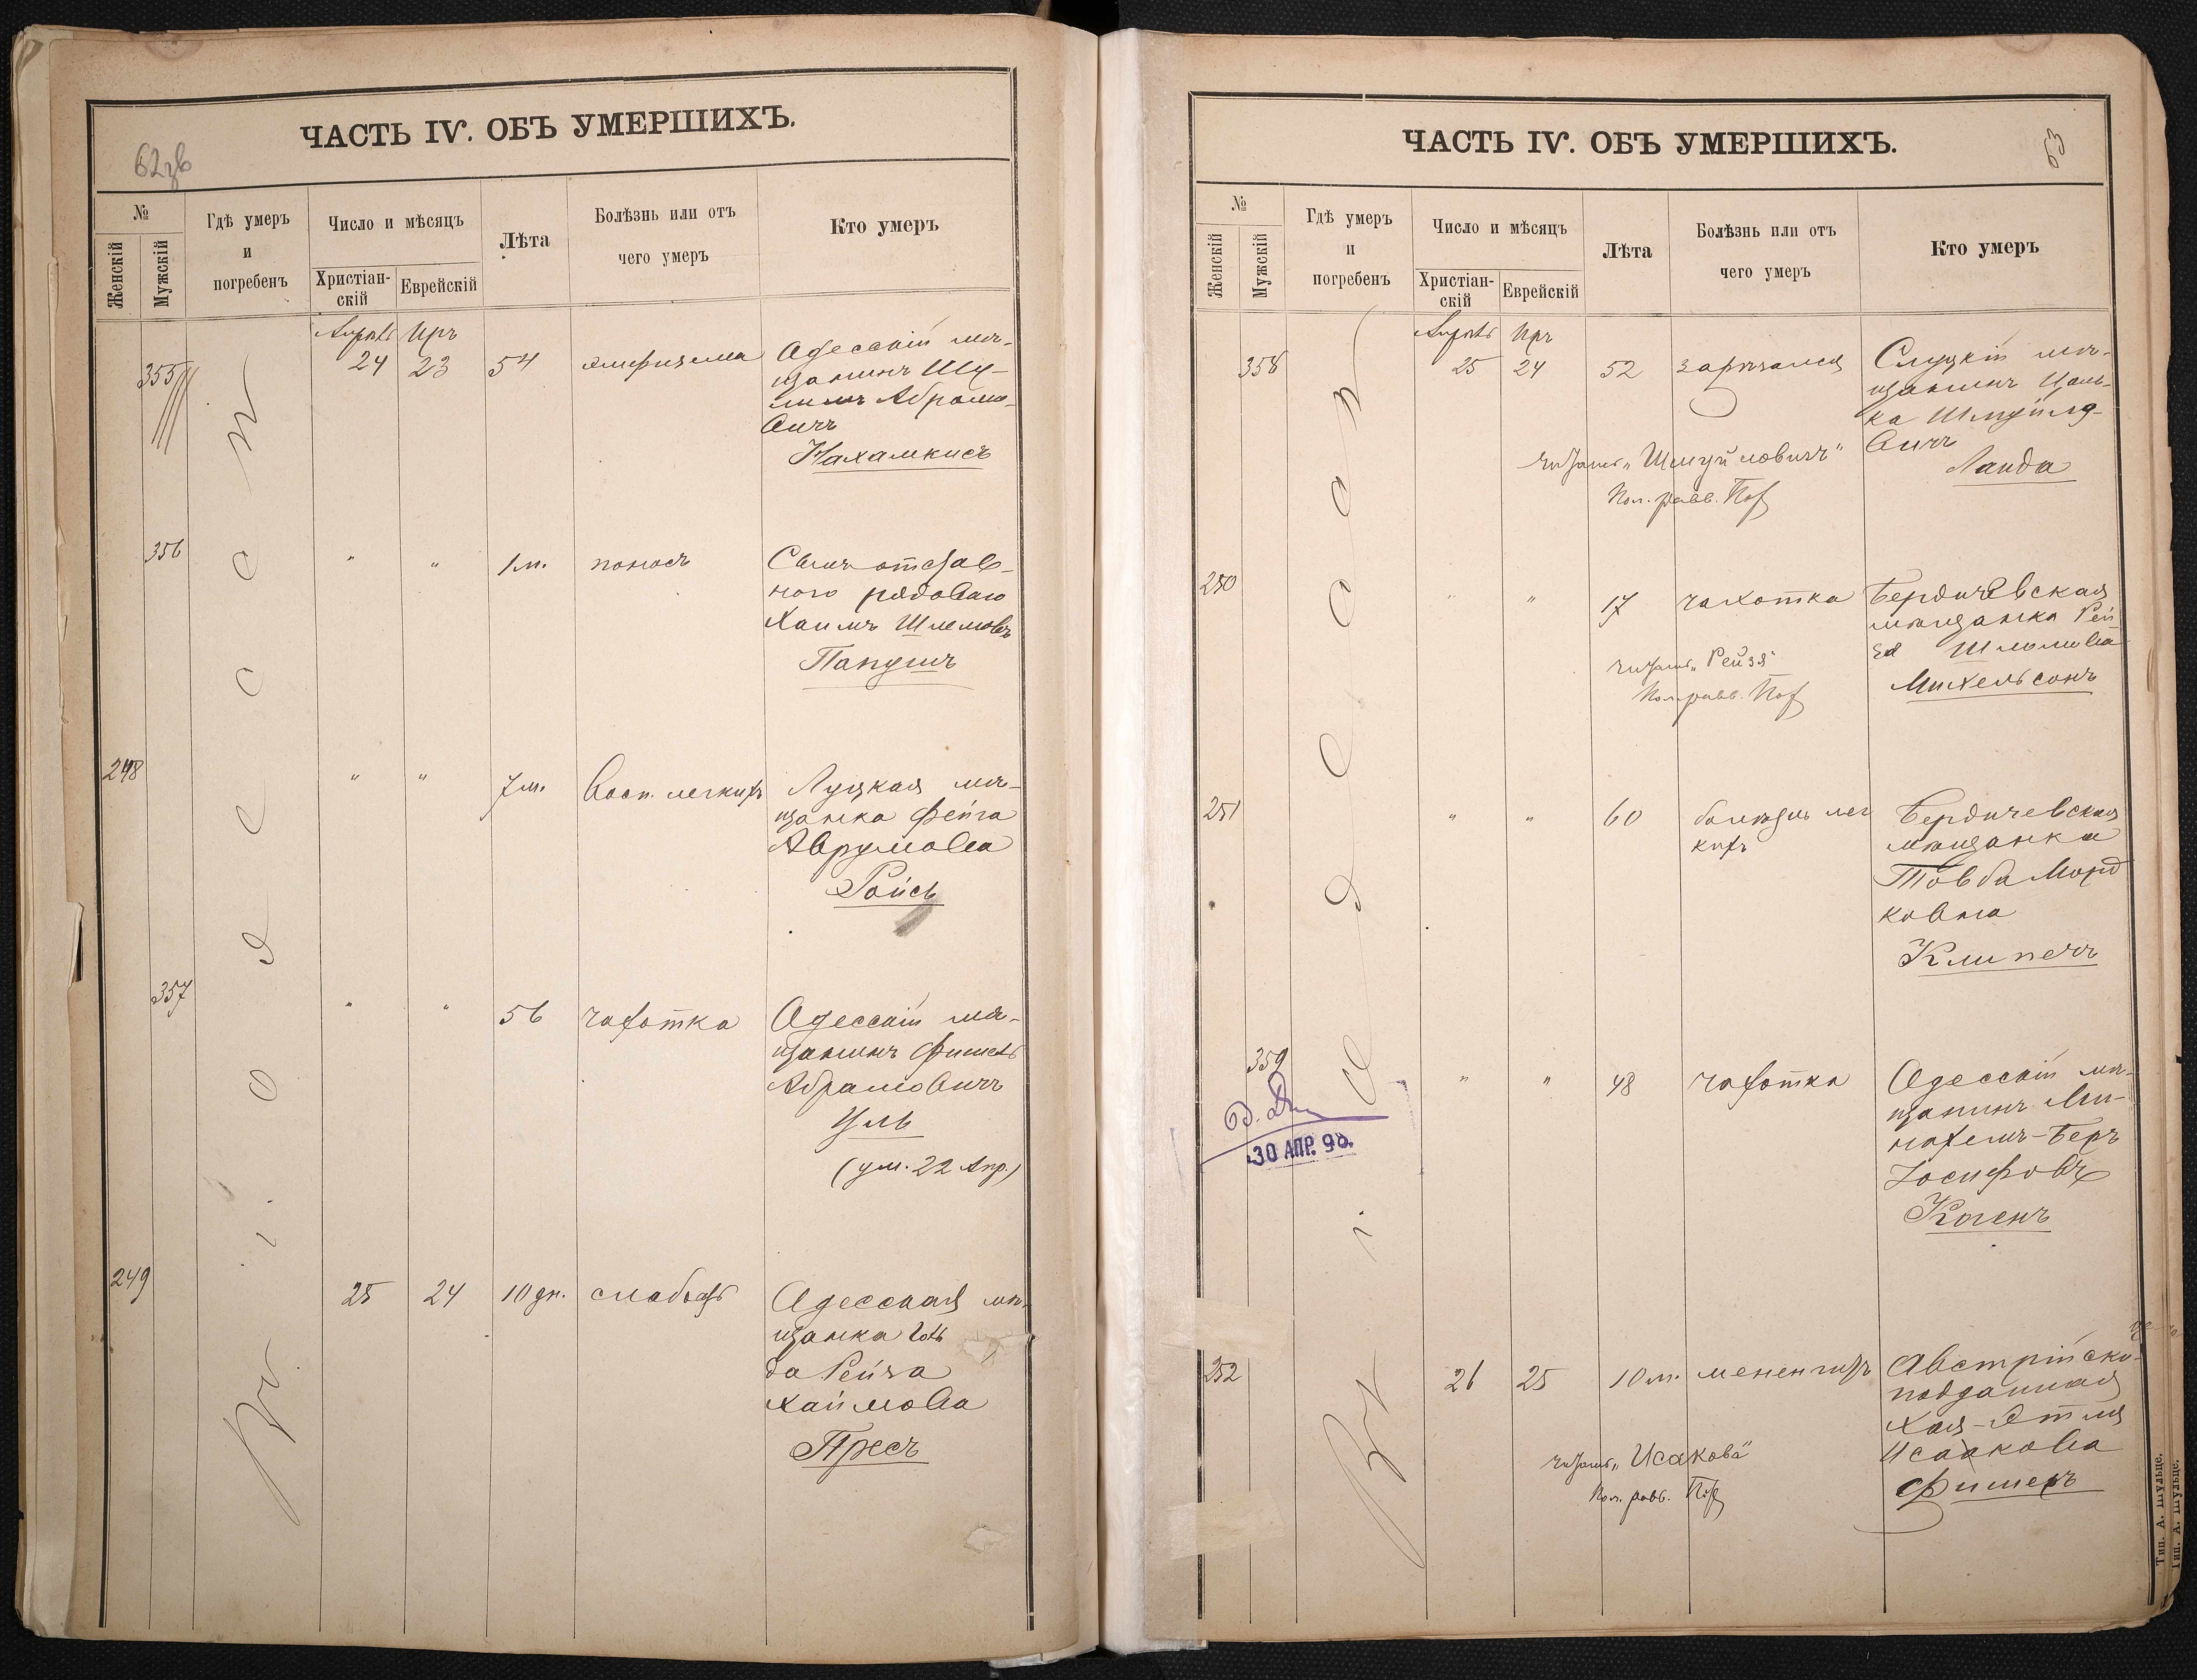 ЧАСТЬ IV. ОБЪ УМЕРШИХЪ.
62
№
Женскій
Мужскій
Гдѣ умеръ
и
погребенъ
Число и мѣсяцъ
Христіан-
скій
Еврейскій
Лѣта
Болѣзнь или отъ
чего умеръ
Кто умеръ
Въ Одессѣ
Апрѣль Иръ
355 24 23 54 эмфизема Одесскій мѣ-
щанинъ Шу-
лимъ Абрамо-
вичъ
Нахамкисъ
356 " " 1 м. поносъ Сынъ отстав-
ного рядоваго
Хаимъ Шлемовъ
Папушъ
248 " " 7 м. Восп. легкихъ Луцкая мѣ-
щанка Фейга
Аврумова
Ройсъ
357 " " 56 чахотка Одесскій мѣ-
щанинъ Фишель
Абрамовичъ
Циль
(ум. 22 Апр.)
249 25 24 10 дн. слабость Одесская мѣ-
щанка Голь
да Рейза
Хаимова
Пресъ
ЧАСТЬ IV. ОБЪ УМЕРШИХЪ.
63
№
Женскій
Мужскій
Гдѣ умеръ
и
погребенъ
Число и мѣсяцъ
Христіан-
скій
Еврейскій
Лѣта
Болѣзнь или отъ
чего умеръ
Кто умеръ
Въ Одессѣ
Апрѣль Иръ
358 25 24 52 зарѣзался Слуцкій мѣ-
щанинъ Цаль-
ка Шмуйло-
вичъ
Ланда
читать „Шмуйловичъ"
Пом. равв.
250 " " 17 чахотка Бердичевская
мѣщанка Рей
зя Шломова
Михельсонъ
читать „Рейзя"
Пом. равв.
251 " " 60 болѣзнь лег
кихъ
Бердичевская
мѣщанка
Товба Морд
ковна
Клипечъ
359 " " 48 чахотка Одесскій мѣ-
щанинъ Ми-
нахемъ-Беръ
Іосифовъ
Когенъ
30 АПР. 98.
252 26 25 10 м. менингитъ Австрійско-
подданная
Хая-Этля
Исаакова
Фишеръ
читать „Исакова"
Пом. равв.
Тип. А. Шульце.
Тип. А. Шульце.